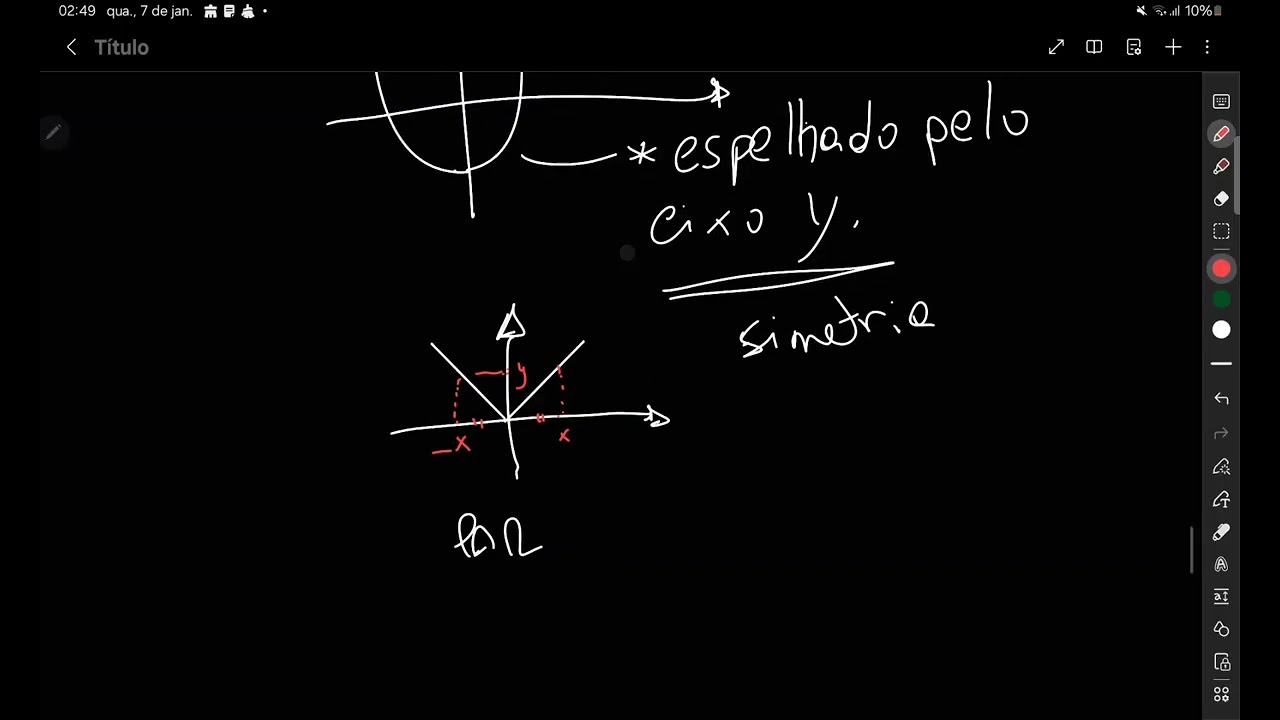 02:49 qua., 7 de jan. 10%
Título
* espelhado pelo
eixo y.
simetria
y
-x x
PAR